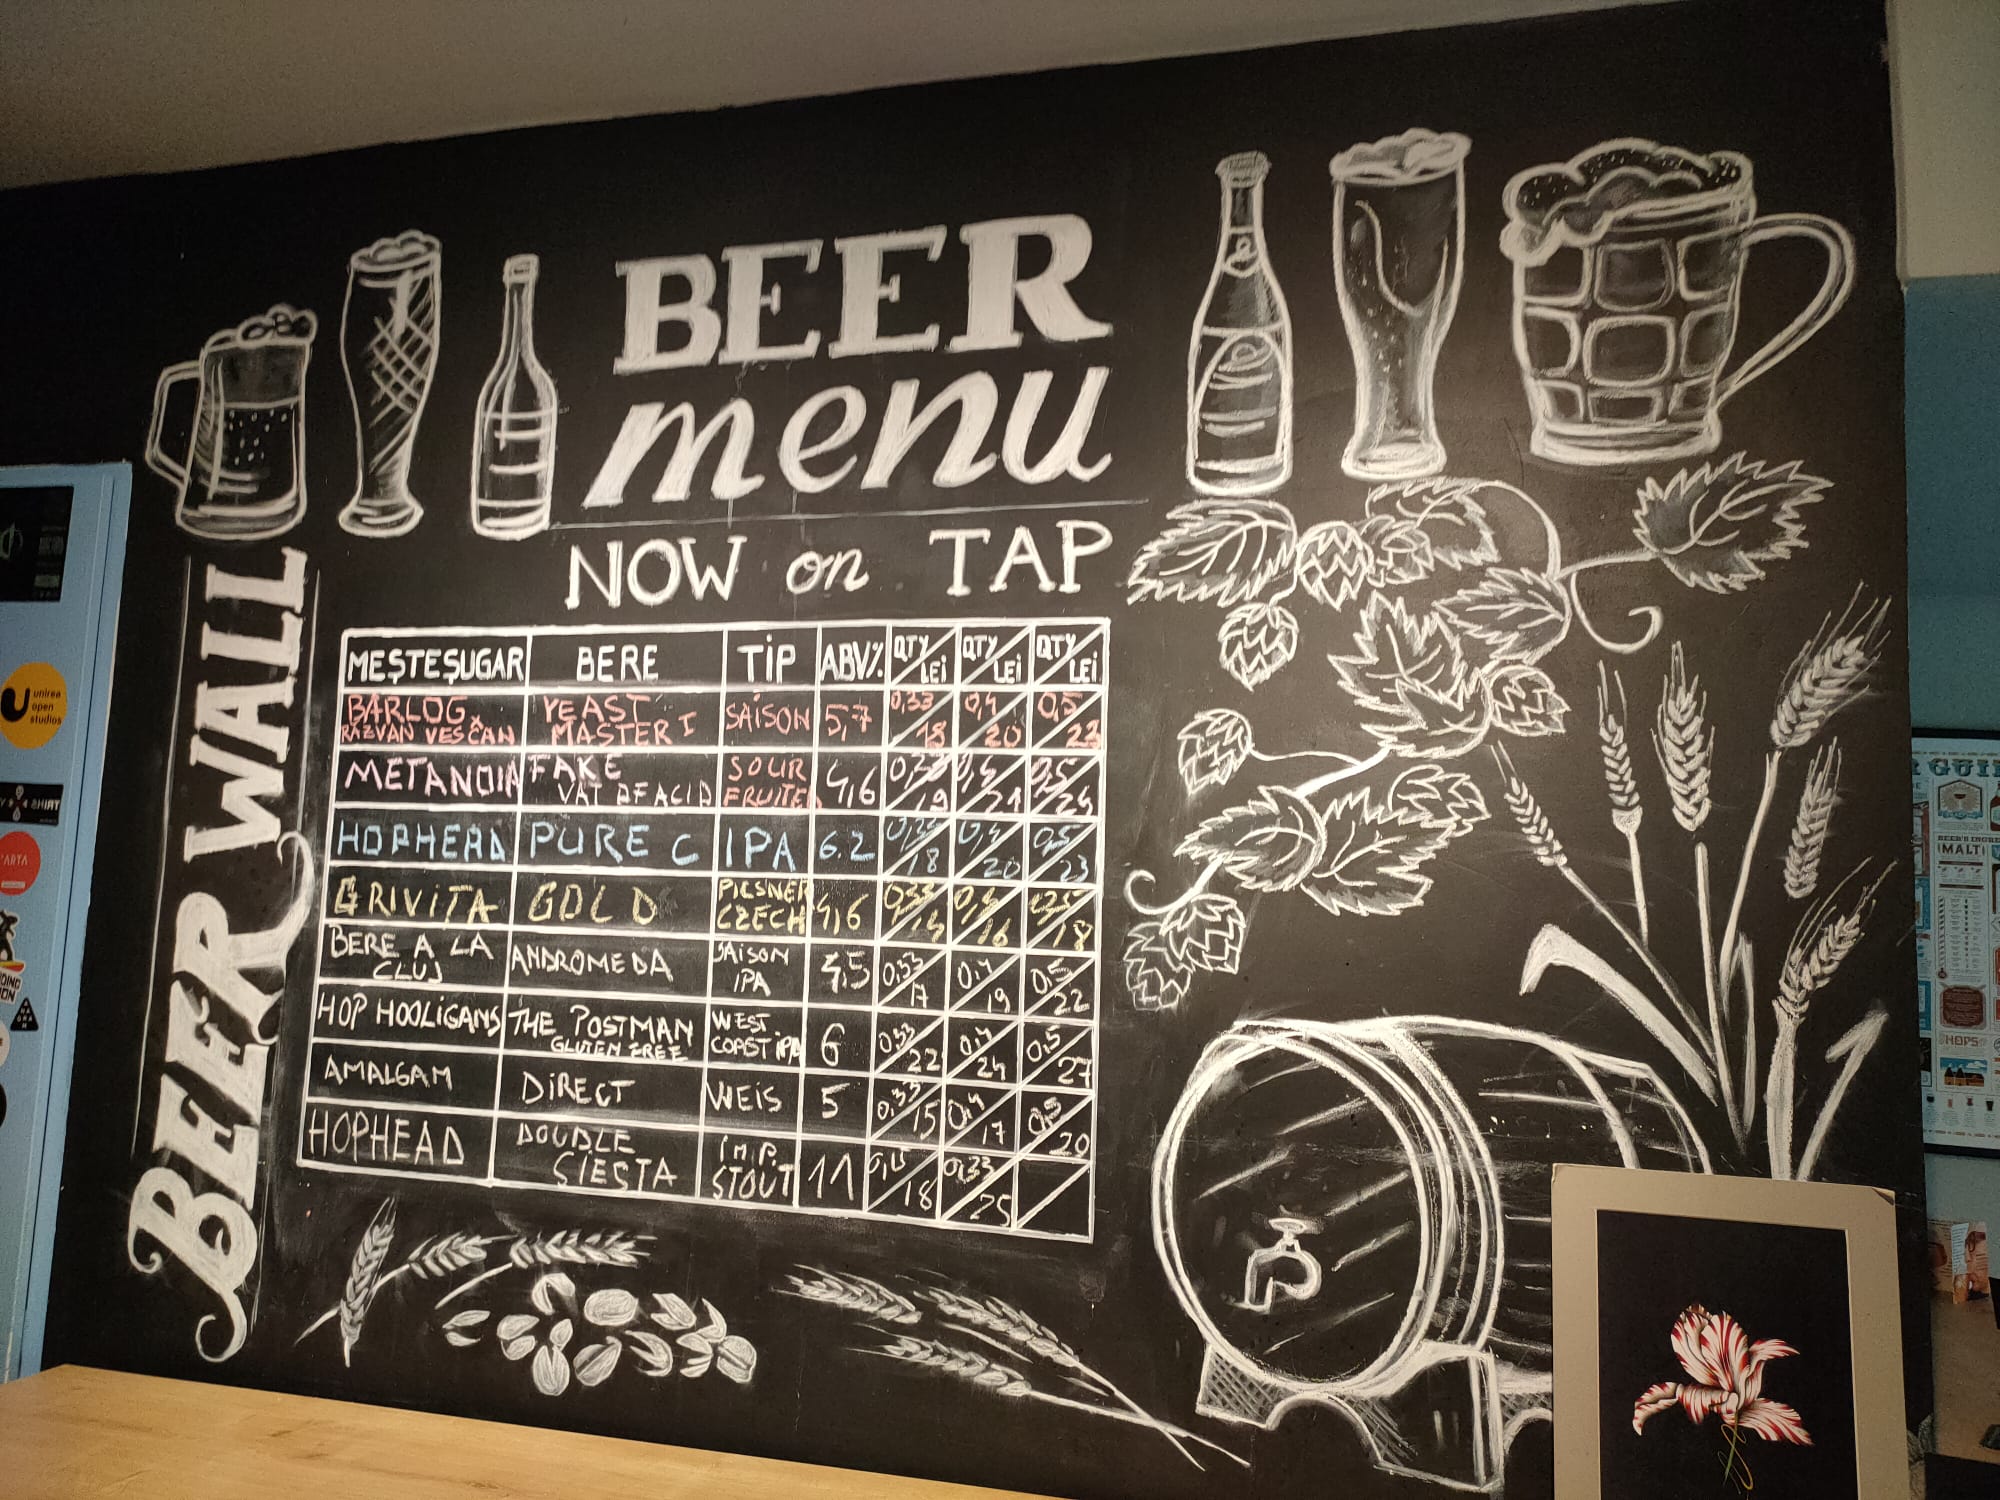 BEER
menu
NOW on TAP
BEER WALL
MEȘTEȘUGAR BERE TIP ABV% QTY/LEI QTY/LEI QTY/LEI
BARLOG YEAST SAISON 5,7 0,33/18 0,4/20 0,5/23
RĂZVAN VEȘCAN MASTER I
METANOIA FAKE SOUR 4,6 0,33/19 0,4/21 0,5/24
VAT OF ACID FRUITED
HOPHEAD PURE C IPA 6.2 0,33/18 0,4/20 0,5/23
GRIVITA GOLD PILSNER 4,6 0,33/14 0,4/16 0,5/18
CZECH
BERE A LA ANDROMEDA SAISON 4,5 0,33/17 0,4/19 0,5/22
CLUJ IPA
HOP HOOLIGANS THE POSTMAN WEST 6 0,33/22 0,4/24 0,5/27
GLUTEN FREE COAST IPA
AMALGAM DIRECT WEIS 5 0,33/15 0,4/17 0,5/20
HOPHEAD DOUBLE IMP. 11 /18 0,33/25
SIESTA STOUT
unirea
open
studios
SHIRT
GUI
BEER'S INGRE
(MALT)
HOPS